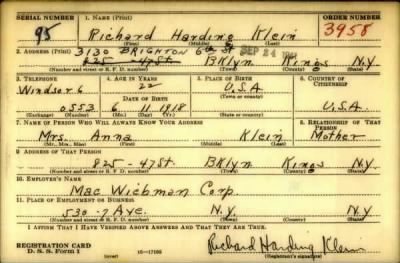 SERIAL NUMBER 1. NAME (Print) ORDER NUMBER
95 Richard Harding Klein 3958
(First) (Middle) (Last)
2. ADDRESS (Print) 3130 BRIGHTON 6th St SEP 24
825 - 47 St. BKlyn Kings N.Y.
(Number and street or R. F. D. number) (Town) (County) (State)
3. TELEPHONE 4. AGE IN YEARS 5. PLACE OF BIRTH 6. COUNTRY OF CITIZENSHIP
Windsor 6 22 U.S.A.
DATE OF BIRTH (Town or county)
0553 6 11 1918 U.S.A.
(Exchange) (Number) (Mo.) (Day) (Yr.) (State or country)
7. NAME OF PERSON WHO WILL ALWAYS KNOW YOUR ADDRESS 8. RELATIONSHIP OF THAT PERSON
Mrs. Anna Klein Mother
(Mr., Mrs., Miss) (First) (Middle) (Last)
9. ADDRESS OF THAT PERSON
825 - 47 St. BKlyn Kings N.Y.
(Number and street or R. F. D. number) (Town) (County) (State)
10. EMPLOYER'S NAME
Mac Wiebman Corp.
11. PLACE OF EMPLOYMENT OR BUSINESS
530 - 7 Ave. N.Y. N.Y.
(Number and street or R. F. D. number) (Town) (County) (State)
I AFFIRM THAT I HAVE VERIFIED ABOVE ANSWERS AND THAT THEY ARE TRUE.
REGISTRATION CARD Richard Harding Klein
D. S. S. Form 1 (over) 16-17105 (Registrant's signature)